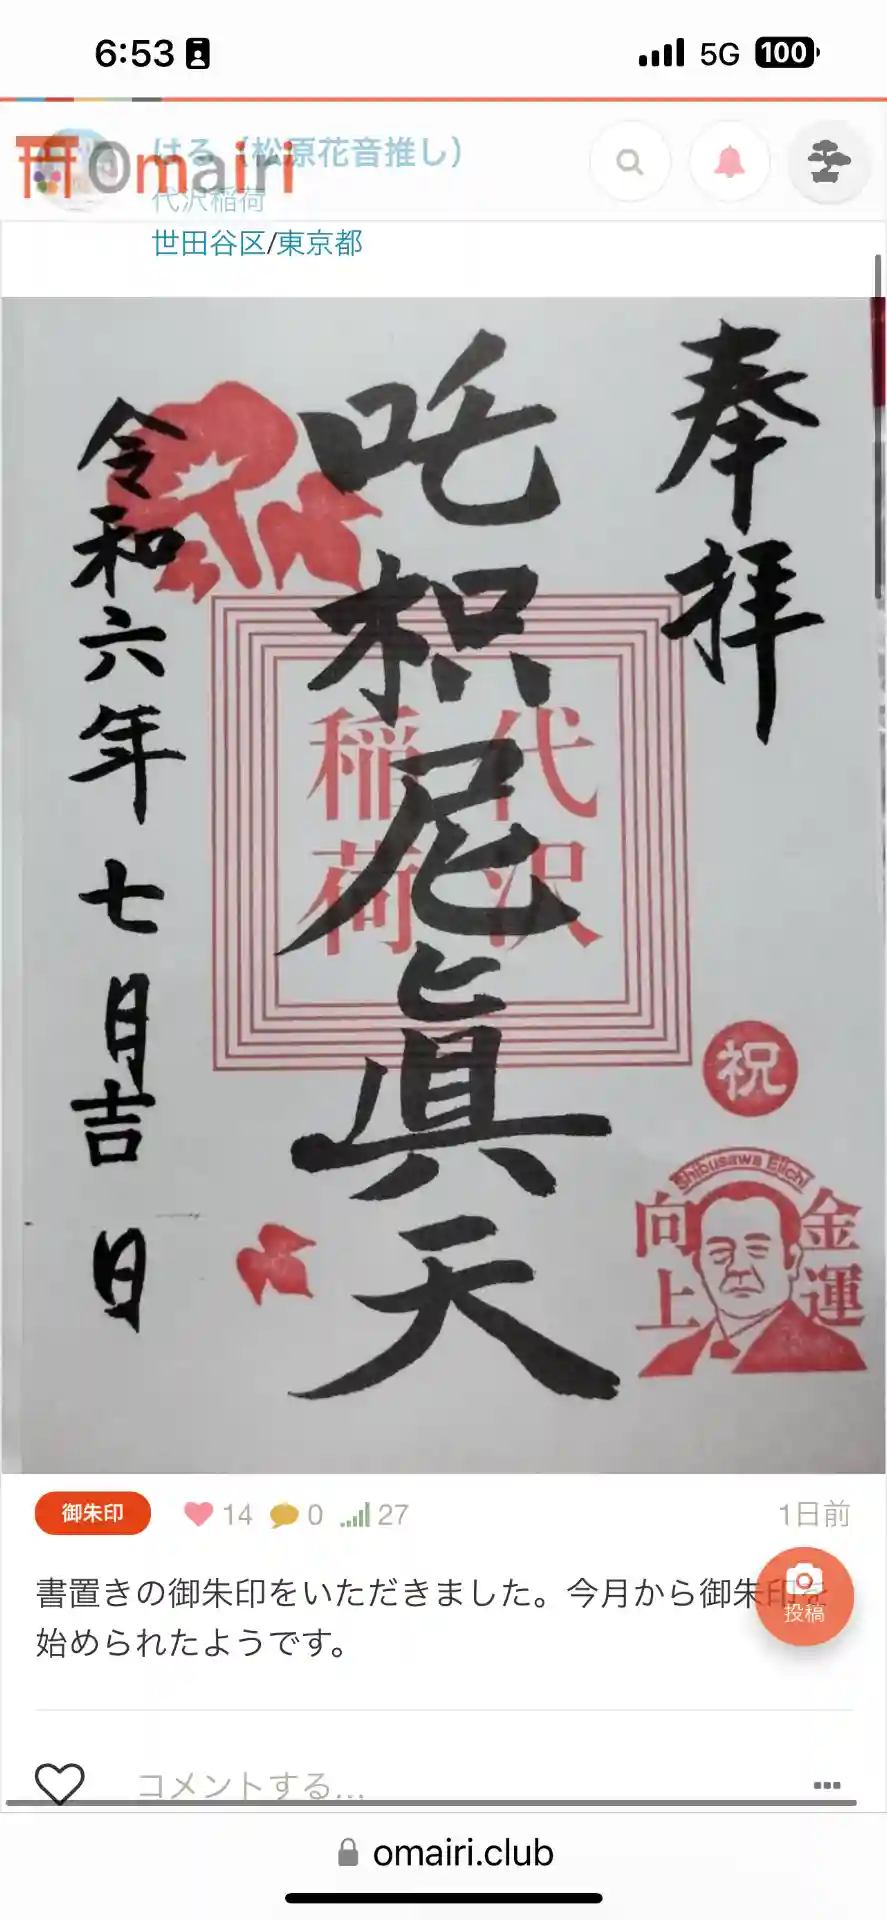 6:53
5G
100
Omairi
はる（松原花音推し）
代沢稲荷
世田谷区/東京都
奉拝
吒枳尼眞天
令和六年七月吉日
代沢
稲荷
祝
Shibusawa Eiichi
金運
向上
御朱印
14
0
27
1日前
書置きの御朱印をいただきました。今月から御朱印を
始められたようです。
投稿
コメントする...
omairi.club